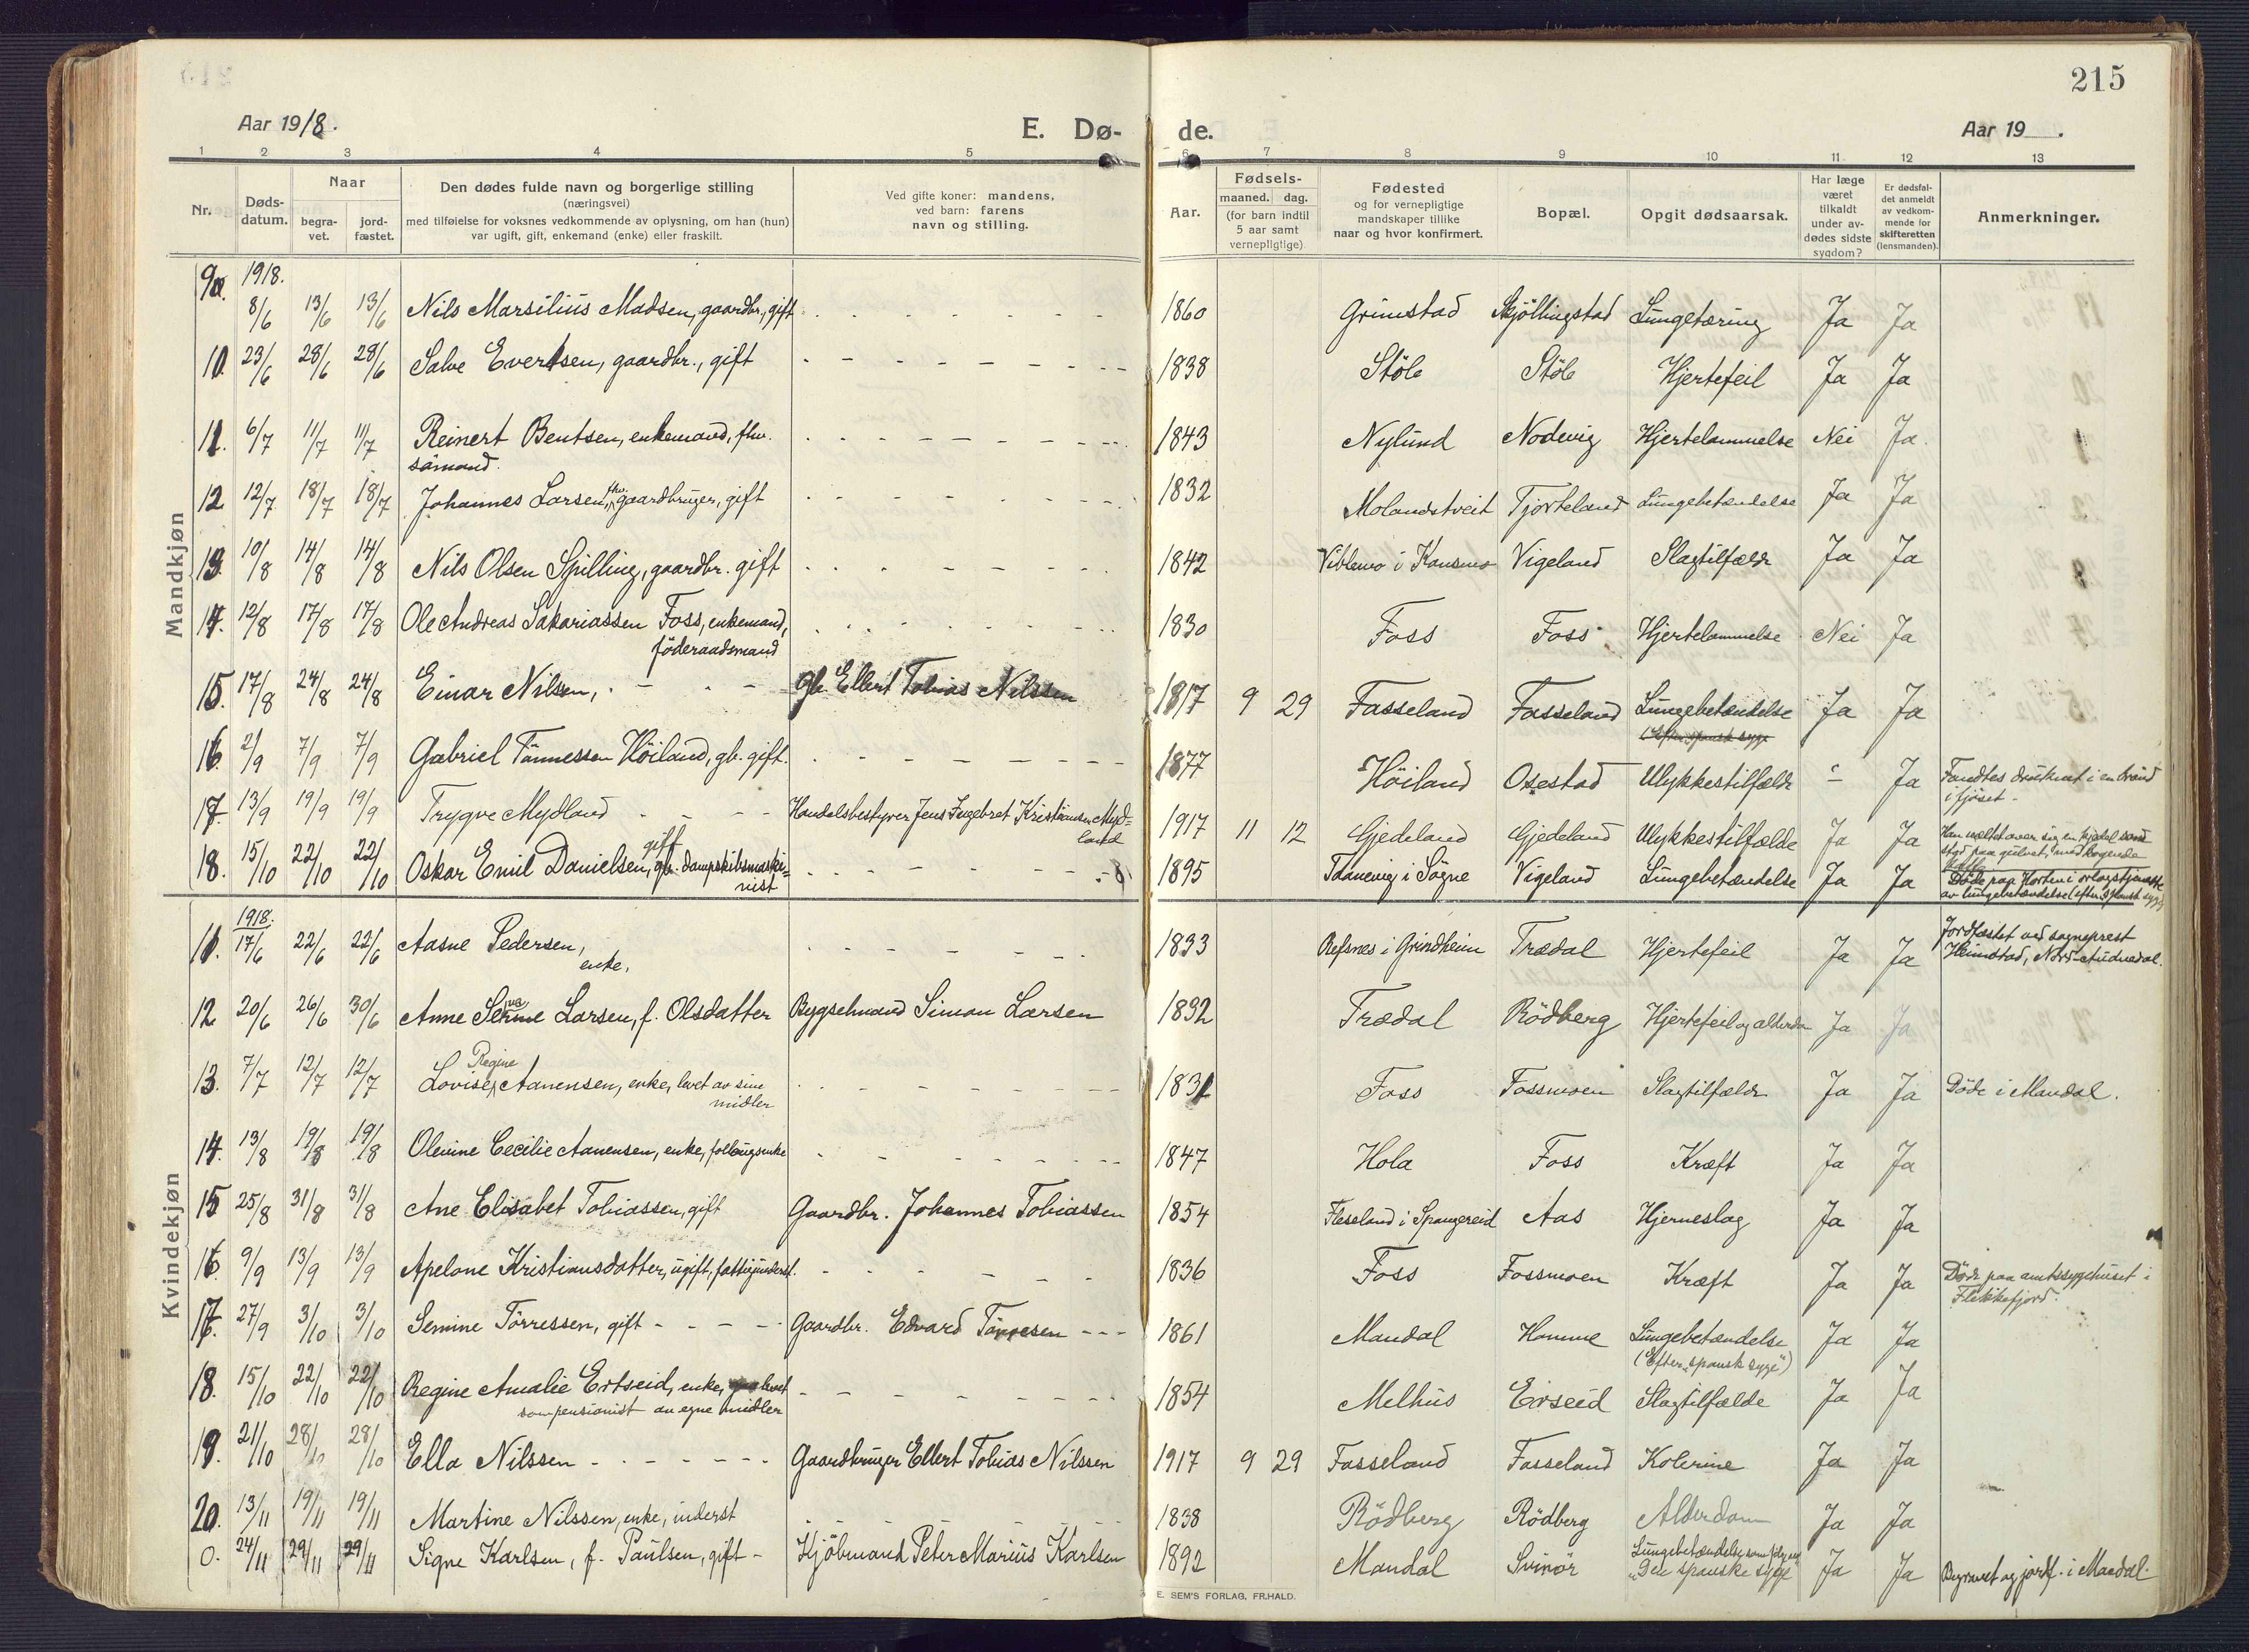 215
Aar 1918.
E. Dø-
de.
Aar 19 .
1 2 3 4 5 6 7 8 9 10 11 12 13
Nr.
Døds-
datum.
Naar
begra-
vet.
jord-
fæstet.
Den dødes fulde navn og borgerlige stilling
(næringsvei)
med tilføielse for voksnes vedkommende av oplysning, om han (hun)
var ugift, gift, enkemand (enke) eller fraskilt.
Ved gifte koner: mandens,
ved barn: farens
navn og stilling.
Aar.
Fødsels-
maaned. dag.
(for barn indtil
5 aar samt
vernepligtige)
Fødested
og for vernepligtige
mandskaper tillike
naar og hvor konfirmert.
Bopæl.
Opgit dødsaarsak.
Har læge
været
tilkaldt
under av-
dødes sidste
sygdom?
Er dødsfal-
det anmeldt
av vedkom-
mende for
skifteretten
(lensmanden).
Anmerkninger.
Mandkjøn
1918.
9. 8/6 13/6 13/6 Nils Marsilius Madsen, gaardbr., gift 1860 Grimstad Skjöllingstad Lungetæring Ja Ja
10. 23/6 28/6 28/6 Salve Evertsen, gaardbr., gift 1838 Stöle Stöle Hjertefeil Ja Ja
11. 6/7 11/7 11/7 Reinert Bentsen, enkemand, fhv. 1843 Nylund Nodevig Hjertelammelse Nei Ja.
sömand.
12 12/7 18/7 18/7 Johannes Larsen, fhv. gaardbruger, gift 1832 Molandstveit Tjorteland Lungebetændelse Ja Ja
13. 10/8 14/8 14/8 Nils Olsen Spilling, gaardbr. gift 1842 Viblemo i Konsmo Vigeland Slagtilfælde Ja Ja
14. 12/8 17/8 17/8 Ole Andreas Sakariassen Foss, enkemand, 1830 Foss Foss Hjertelammelse Nei Ja
föderaadsmand
15. 17/8 24/8 24/8 Einar Nilsen, gb. Ellert Tobias Nilssen 1917 9 29 Fasseland Fasseland Lungebetændelse Ja Ja
(Efter spansk syge
16. 2/9 7/9 7/9 Gabriel Tönnessen Höiland, gb. gift. 1877 Höiland Osestad Ulykkestilfælde - Ja Fandtes druknet i en brönd
i fjöset.
17. 13/9 19/9 19/9 Trygve Mydland Handelsbestyrer Jens Ingebret Kristiansen Myd=
land 1917 11 12 Gjedeland Gjedeland Ulykkestilfælde Ja Ja Han væltet over sig en kjedel som
stod paa gulvet, med kogende
kaffe
18. 15/10 22/10 22/10 Oskar Emil Danielsen, gift gb. dampskibsmaski=
nist 1895 Taanevig i Sögne Vigeland Lungebetændelse Ja Ja Döde paa Horten i orlogstjeneste
av lungebetændelse (efter spansk syge)
Kvindekjøn
1918.
11. 17/6 22/6 22/6 Aasne Pedersen, 1833 Refsnes i Grindheim Trædal Hjertefeil Ja Ja Jordfæstet ved sogneprest
enke. Heimstad, Nord-Audnedal.
12 20/6 26/6 30/6 Anne Serine Larsen, f. Olsdatter Bygselmand Simon Larsen 1832 Trædal Rödberg Hjertefeil og alderdom Ja Ja
13. 7/7 12/7 12/7 Lovise Regine Aanensen, enke, levet av sine 1831 Foss Fossmoen Slagtilfælde Ja Ja Döde i Mandal.
midler
14. 13/8 19/8 19/8 Olevine Cecilie Aanensen, enke, follaugsenke 1847 Hola Foss Kræft Ja Ja
15 25/8 31/8 31/8 Ane Elisabet Tobiassen, gift Gaardbr. Johannes Tobiassen 1854 Fleseland i Spangereid Aas Hjerneslag Ja Ja
16. 9/9 13/9 13/9 Apelone Kristiansdatter, ugift, fattigunderst. 1836 Foss Fossmoen Kræft Ja Ja Döde paa amtssygehuset i
Flekkefjord.
17. 27/9 3/10 3/10 Semine Törressen, gift Gaardbr. Edvard Törresen 1861 Mandal Homme Lungebetændelse Ja Ja
(Efter „spansk syge")
18. 15/10 22/10 22/10 Regine Amalie Ertseid, enke, levet 1854 Melhus Eirseid Slagtilfælde Ja Ja
som pensionist av egne midler
19. 21/10 28/10 28/10 Ella Nilssen Gaardbruger Ellert Tobias Nilssen 1917 9 29 Fasseland Fasseland Kolerine Ja Ja
20. 13/11 19/11 19/11 Martine Nilssen, enke, inderst 1838 Rödberg Rödberg Alderdom Ja Ja
0. 24/11 29/11 29/11 Signe Karlsen, f. Paulsen, gift - Kjöbmand Peter Marius Karlsen 1892 Mandal Svinör Lungebetændelse som fölge av
„Den spanske syge" Ja Ja Begravet og jordf. i Mandal.
E. SEM'S FORLAG, FR.HALD.